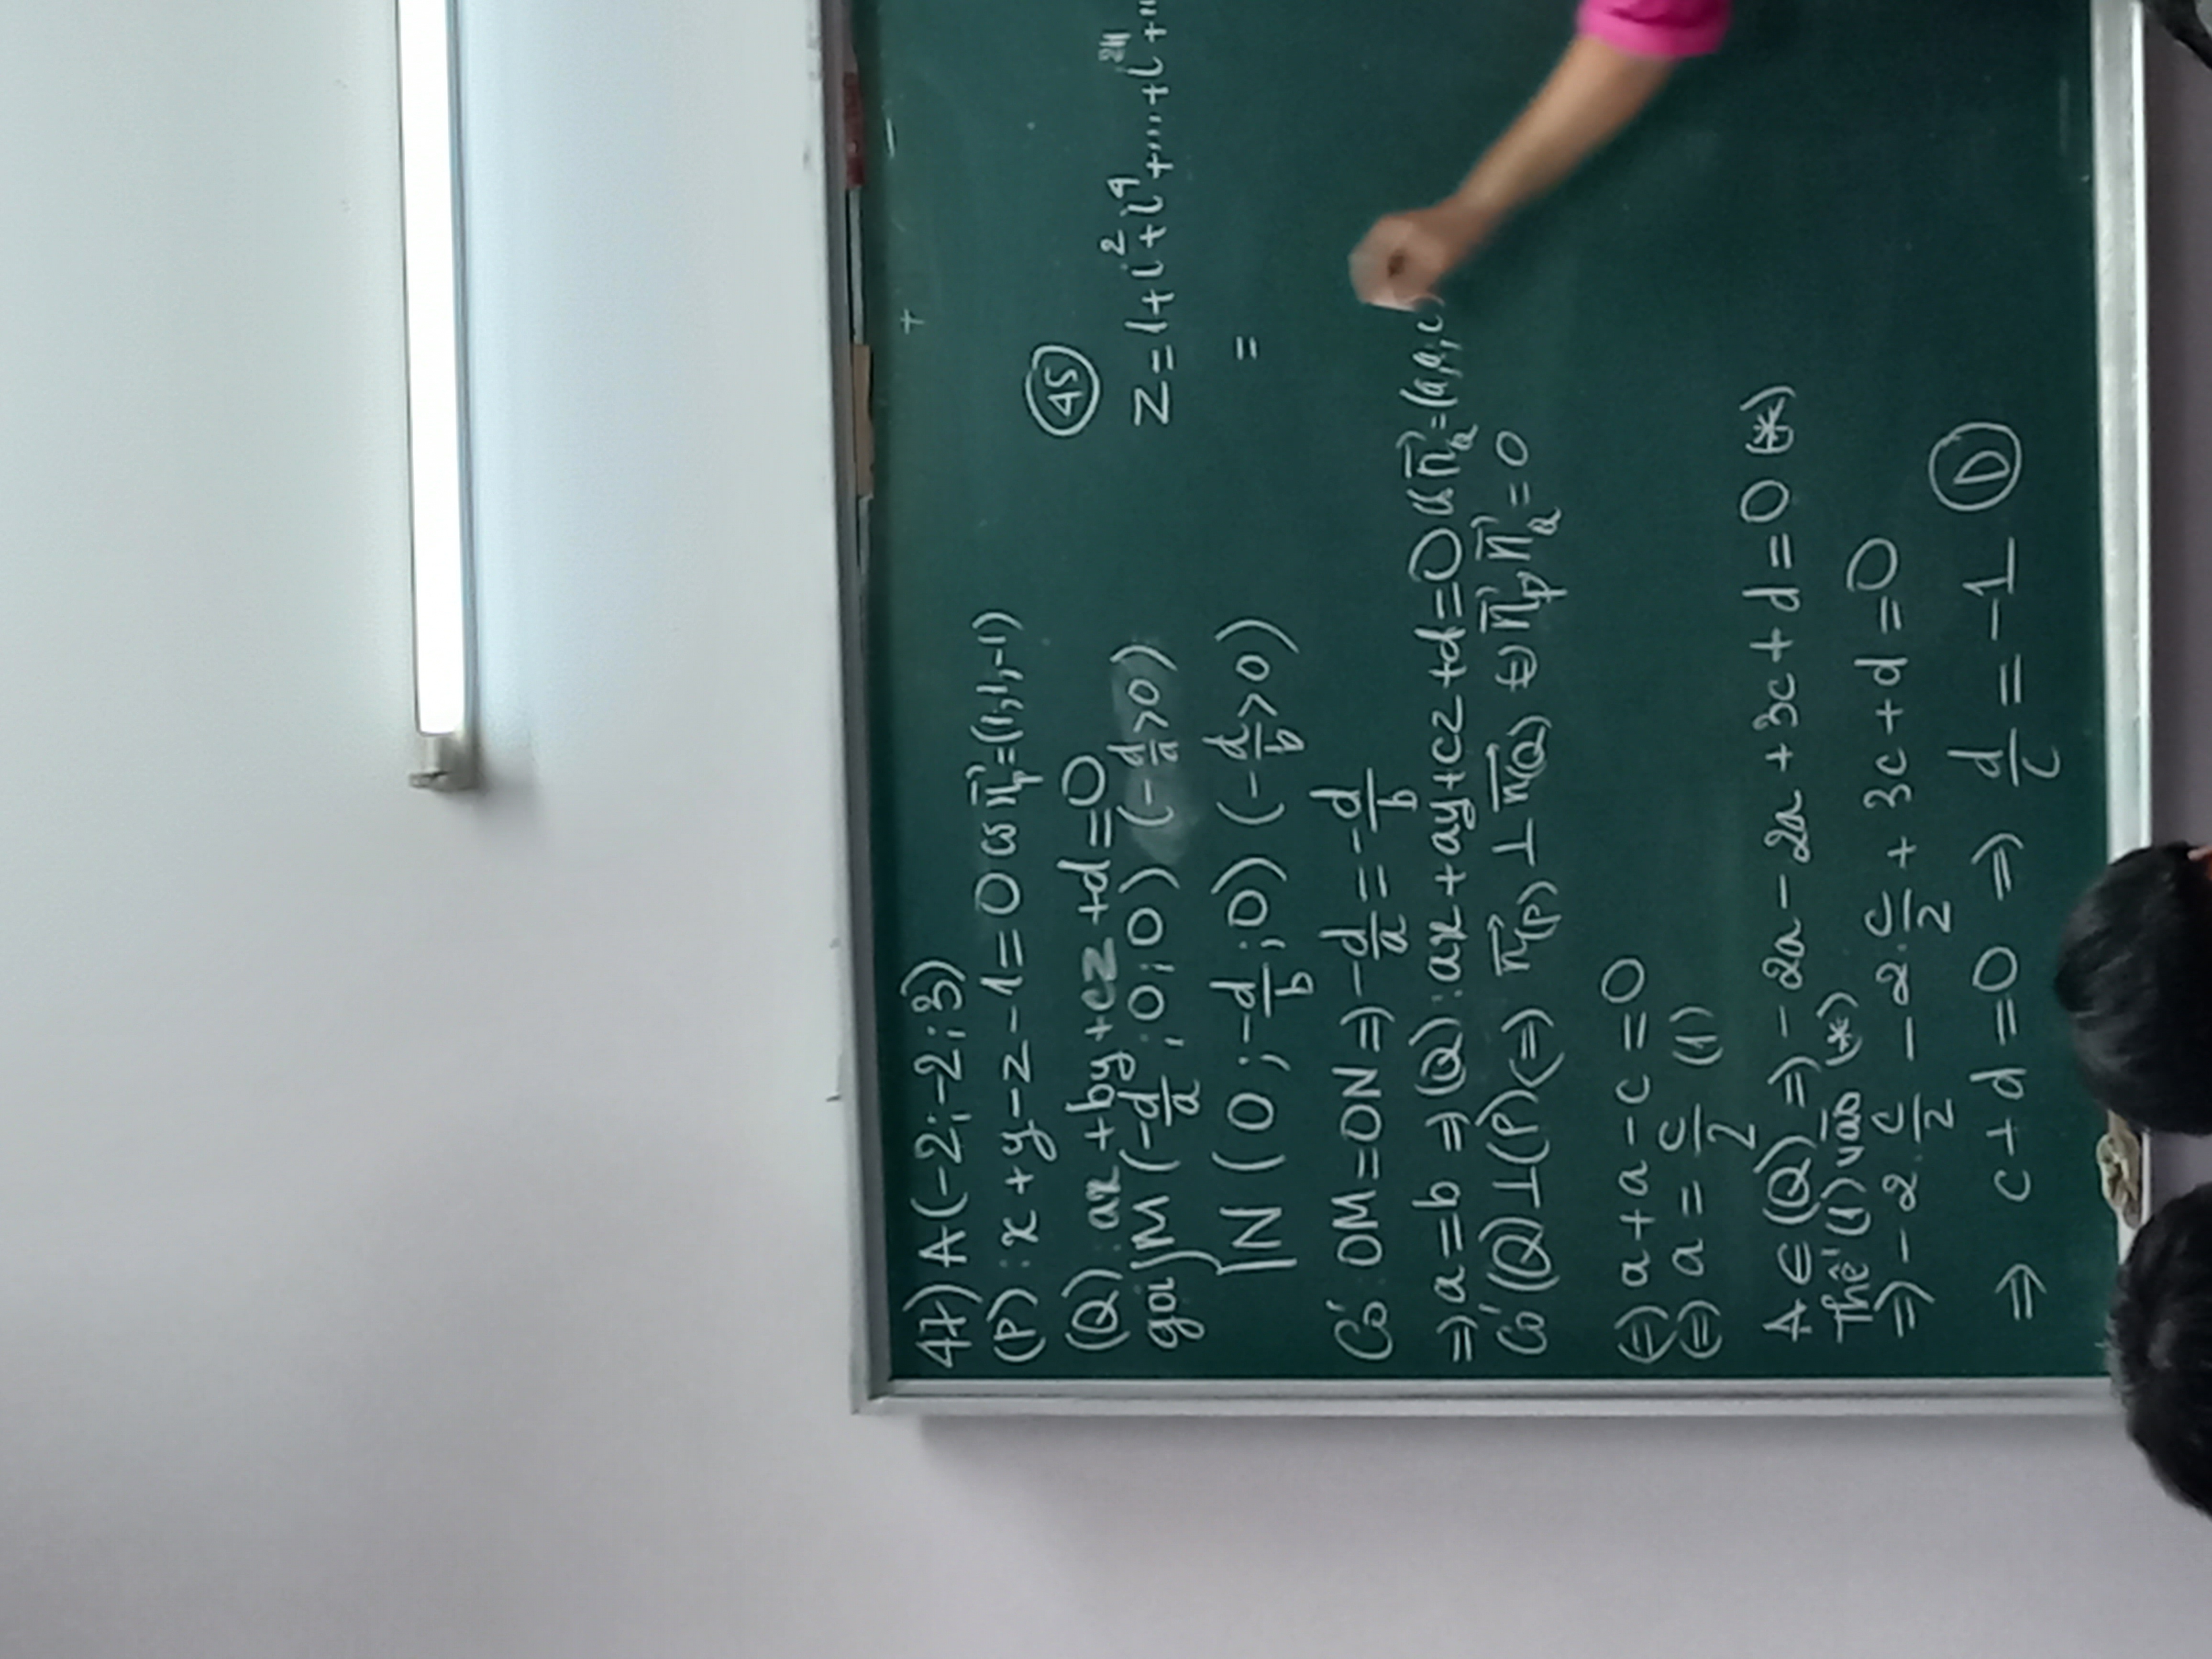 47) A(-2;-2;3)
(P): x+y-z-1=0 có n⃗p=(1;1;-1)
(Q): ax+by+cz+d=0
gọi { M (-d/a; 0; 0) (-d/a>0)
N (0; -d/b; 0) (-d/b>0)
Có OM=ON => -d/a = -d/b
=> a=b => (Q): ax+ay+cz+d=0 có n⃗Q=(a;a;c)
Có (Q)⊥(P) <=> n⃗(P) ⊥ n⃗(Q) <=> n⃗p.n⃗Q=0
<=> a+a-c=0
<=> a = c/2 (1)
A∈(Q) => -2a-2a+3c+d=0 (*)
Thế (1) vào (*)
=> -2.c/2 -2.c/2 + 3c+d=0
=> c+d=0 => d/c = -1 (D)
(45)
z=1+i²+i⁴+...+i
=